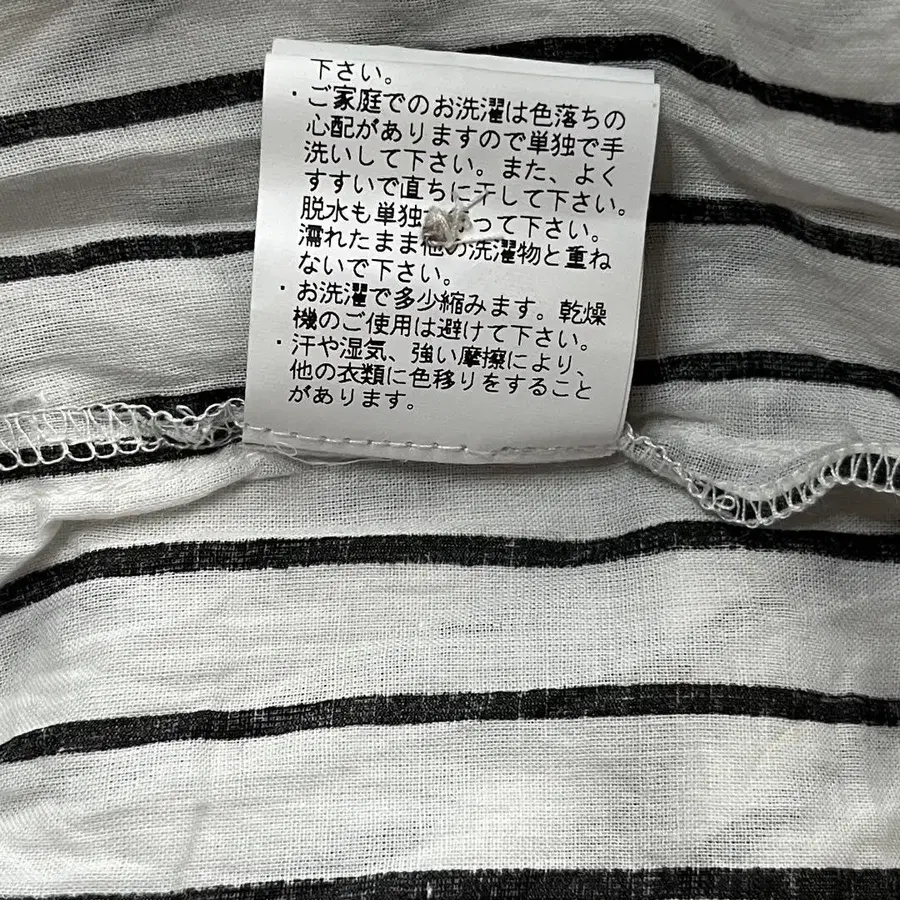 下さい。
・ご家庭でのお洗濯は色落ちの
心配がありますので単独で手
洗いして下さい。また、よく
すすいで直ちに干して下さい。
脱水も単独 って下さい。
濡れたまま他の洗濯物と重ね
ないで下さい。
・お洗濯で多少縮みます。乾燥
機のご使用は避けて下さい。
・汗や湿気、強い摩擦により、
他の衣類に色移りをすること
があります。